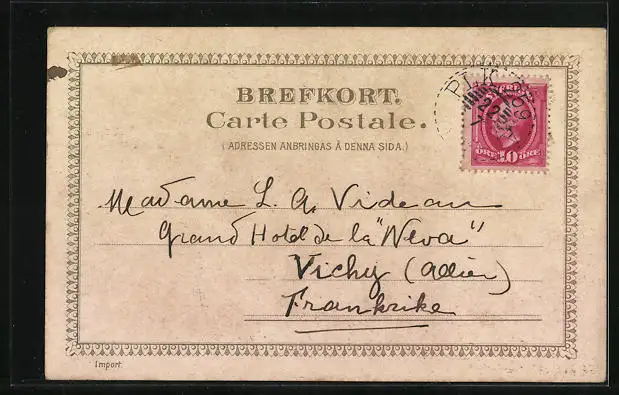 BREFKORT.
Carte Postale.
(ADRESSEN ANBRINGAS Å DENNA SIDA.)
PLK
ÖRE 10 ÖRE
Madame L. A. Videau
Grand Hotel de la "Neva"
Vichy (Allier)
Frankrike
Import.